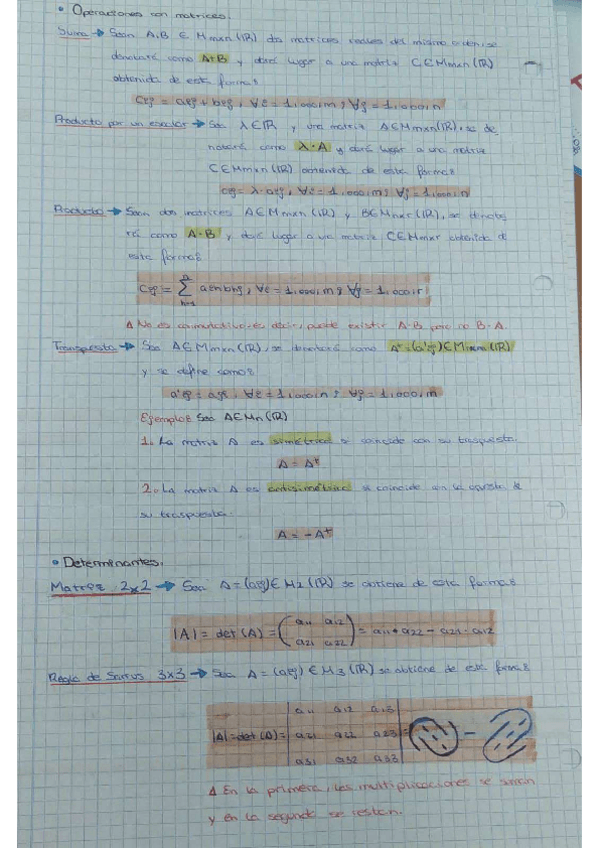 • Operaciones con matrices.
Suma → Sean A,B ∈ Mmxn(IR) dos matrices reales del mismo orden, se
denotará como A+B y dará lugar a una matriz C∈Mmxn(IR)
obtenida de esta forma:
cij = aij + bij, ∀i = 1,...,m; ∀j = 1,...,n
Producto por un escalar → Sea λ∈IR y una matriz A∈Mmxn(IR), se de-
notará como λ·A y dará lugar a una matriz
C∈Mmxn(IR) obtenida de esta forma:
cij = λ·aij, ∀i = 1,...,m; ∀j = 1,...,n
Producto → Sean dos matrices A∈Mmxn(IR) y B∈Mnxr(IR), se denota-
rá como A·B y dará lugar a una matriz C∈Mmxr obtenida de
esta forma:
cij = ∑ⁿh=1 aih bhj, ∀i = 1,...,m; ∀j = 1,...,r
Δ No es conmutativo, es decir, puede existir A·B pero no B·A.
Transpuesta → Sea A∈Mmxn(IR), se denotará como Aᵗ=(a'ij)∈Mnxm(IR)
y se define como:
a'ij = aji, ∀i = 1,...,n; ∀j = 1,...,m
Ejemplo: Sea A∈Mn(IR)
1. La matriz A es simétrica si coincide con su traspuesta.
A = Aᵗ
2. La matriz A es antisimétrica si coincide con la opuesta de
su traspuesta.
A = -Aᵗ
• Determinantes.
Matriz 2x2 → Sea A = (aij) ∈ M2(IR) se obtiene de esta forma:
|A| = det(A) = (a11 a12
a21 a22) = a11·a22 - a21·a12
Regla de Sarrus 3x3 → Sea A = (aij) ∈ M3(IR) se obtiene de esta forma:
a11 a12 a13
|A| = det(A) = a21 a22 a23 = -
a31 a32 a33
Δ En la primera, las multiplicaciones se suman
y en la segunda se restan.